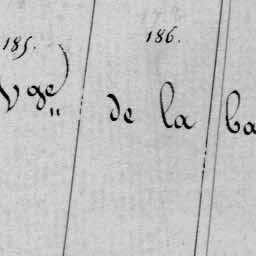 185. 186.
Vge de la ba